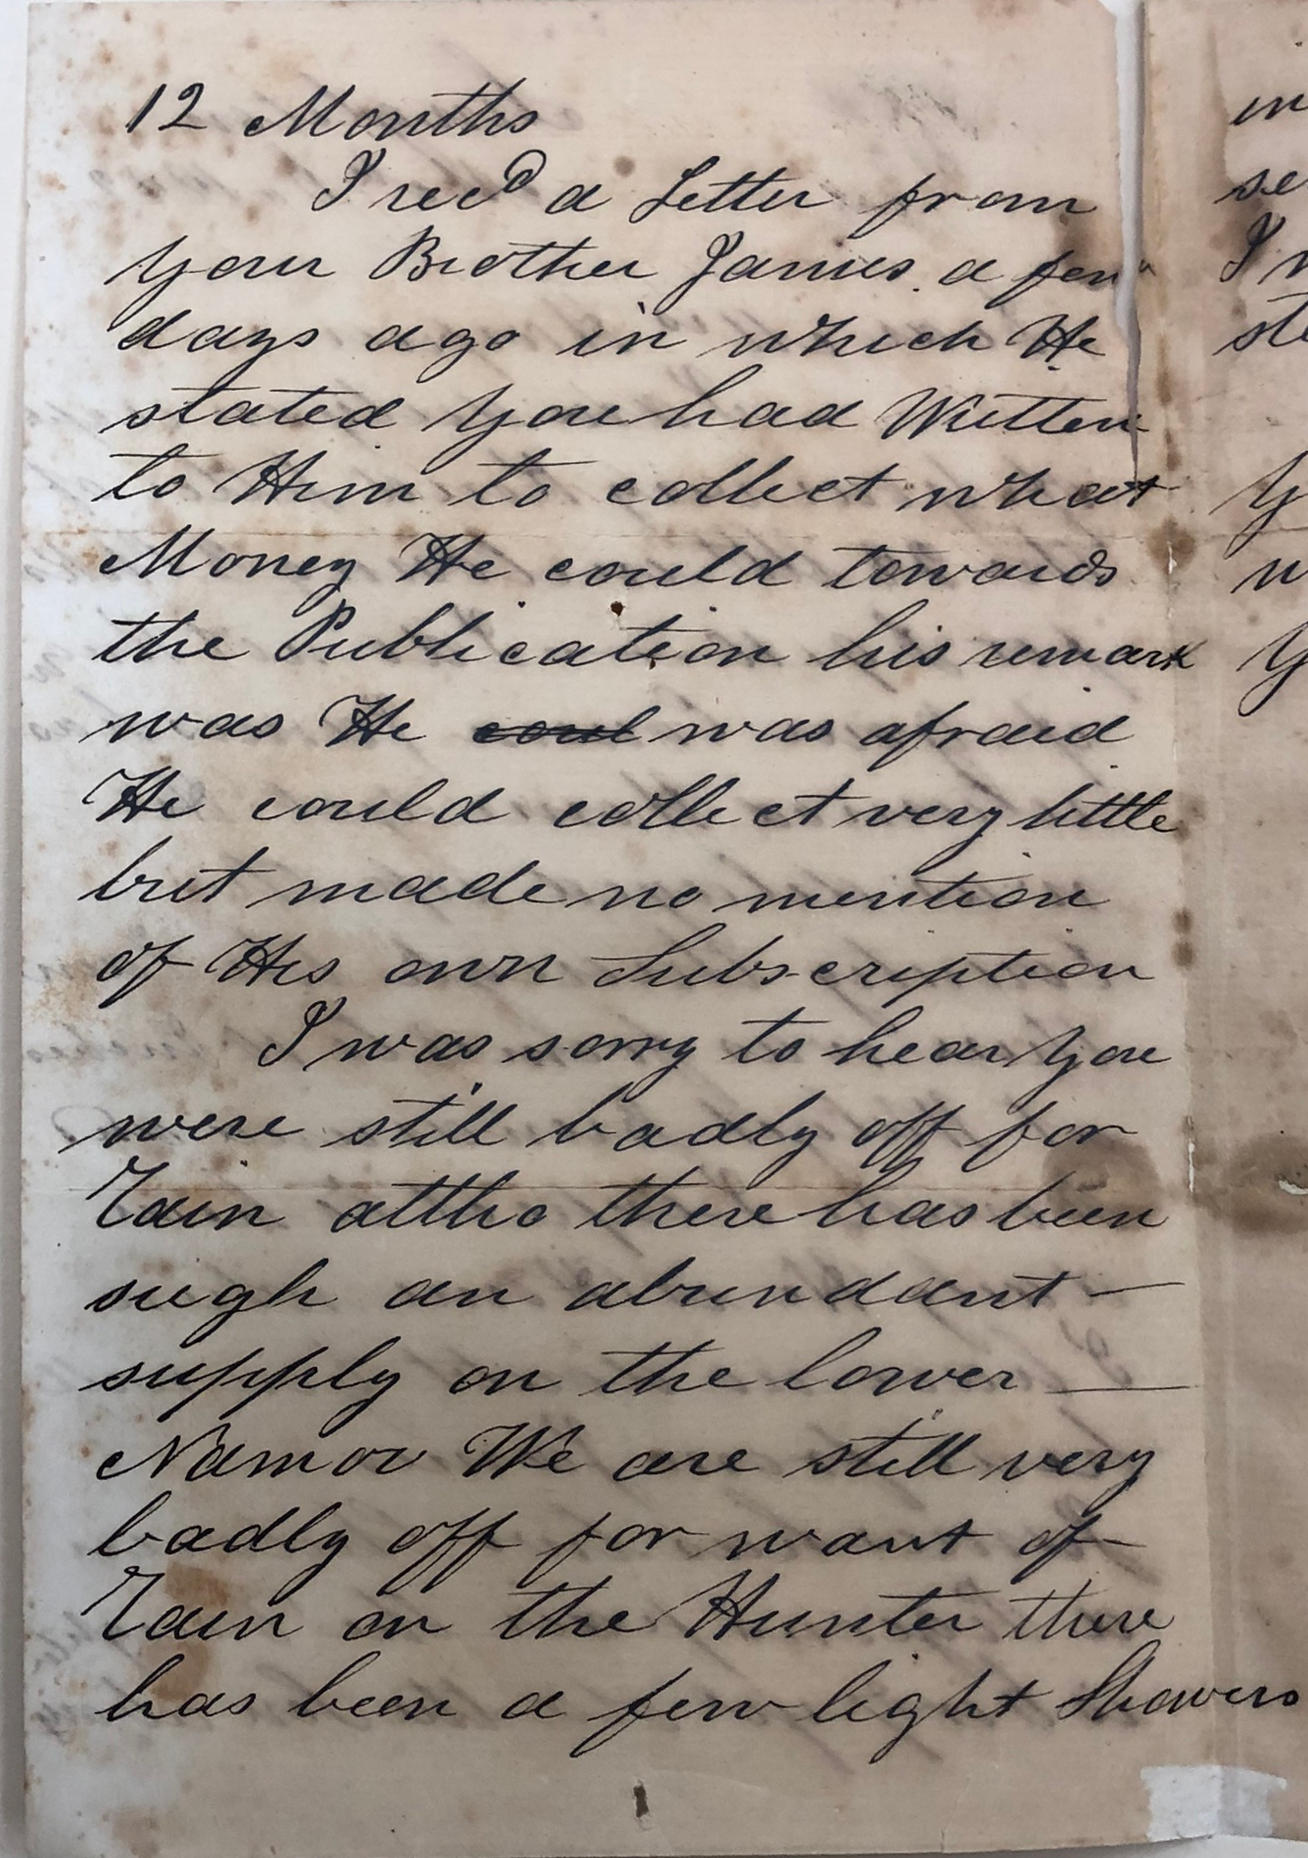 12 Months
I recd a Letter from
your Brother James a few
days ago in which He
stated you had Written
to Him to collect what
Money He could towards
the Publication his remark
was He coul was afraid
He could collect very little
but made no mention
of His own Subscription
I was sorry to hear you
were still badly off for
Rain altho there has been
sugh an abundant —
supply on the lower —
Namoi We are still very
badly off for want of
Rain on the Hunter there
has been a few light Showers
in
I